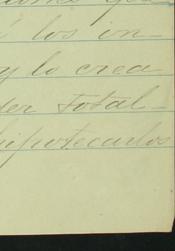 los in-
y lo crea
der total-
hipotecarlos